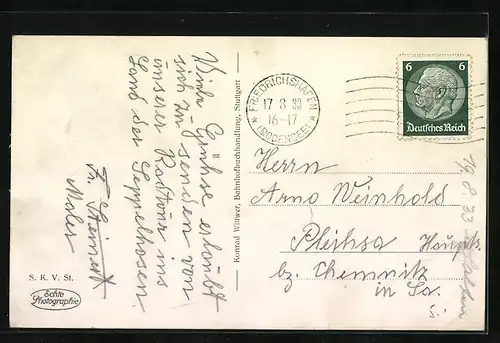 Viele Grüsse erlaubt
sich zu senden von
unserer Radtour ins
Land der Seppelhosen
Fr. Steinert
Maler
S. K. V. St.
Echte
Photographie
Konrad Wittwer, Bahnhofbuchhandlung, Stuttgart
FRIEDRICHSHAFEN
17 8 33
16-17
(BODENSEE)
6 6
Deutsches Reich
Herrn
Arno Weinhold
Pleihsa
bz. Chemnitz
in Sa.
19 8 33